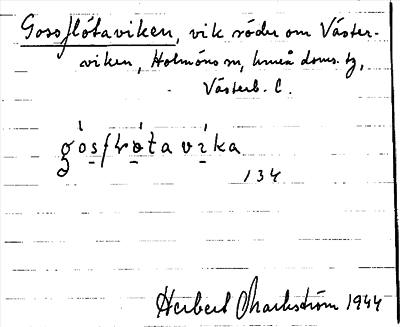 Gossflötaviken, vik söder om Väster-
viken, Holmöns sn, Umeå doms. tg,
Västerb. l.
gòsfłǫta vìka
134
Herbert Markström 1944